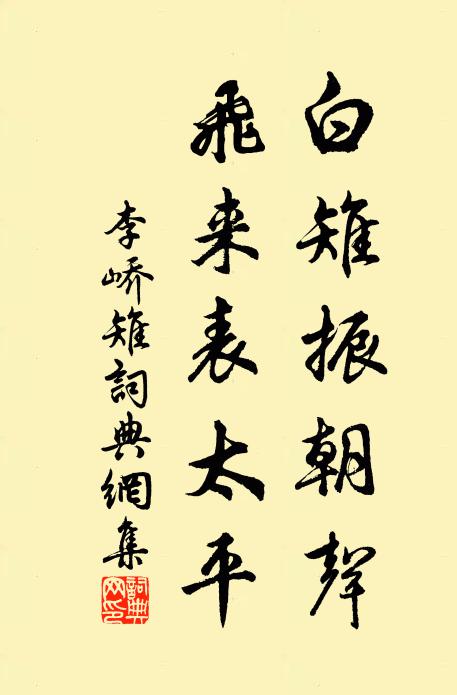 白雉振朝聲
飛来表太平
李嶠雉詞典網集
詞典網印